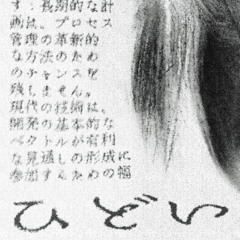 す：長期的な計
画は、プロセス
管理の革新的
な方法のため
のチャンスを
残しません。
現代の技術は、
開発の基本的な
ベクトルが有利
な見通しの形成に
参加するための幅
ひどい